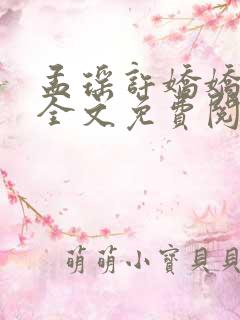 孟瑶許嬌嬌
全文免費閱
萌萌小寶貝貝